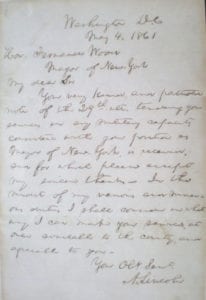 Washington D.C.
May 4. 1861
Hon. Fernando Wood
Mayor of New York
My dear Sir
Your very kind and patriotic
note of the 29th ult. tendering your
services in any military capacity
consistent with your position as
Mayor of New York, is received,
and for which please accept
my sincere thanks. In the
midst of my various and numer-
ous duties I shall consider in what
way I can make your services at
once available to the country, and
agreeable to you.
Your Obt Servt.
A. Lincoln